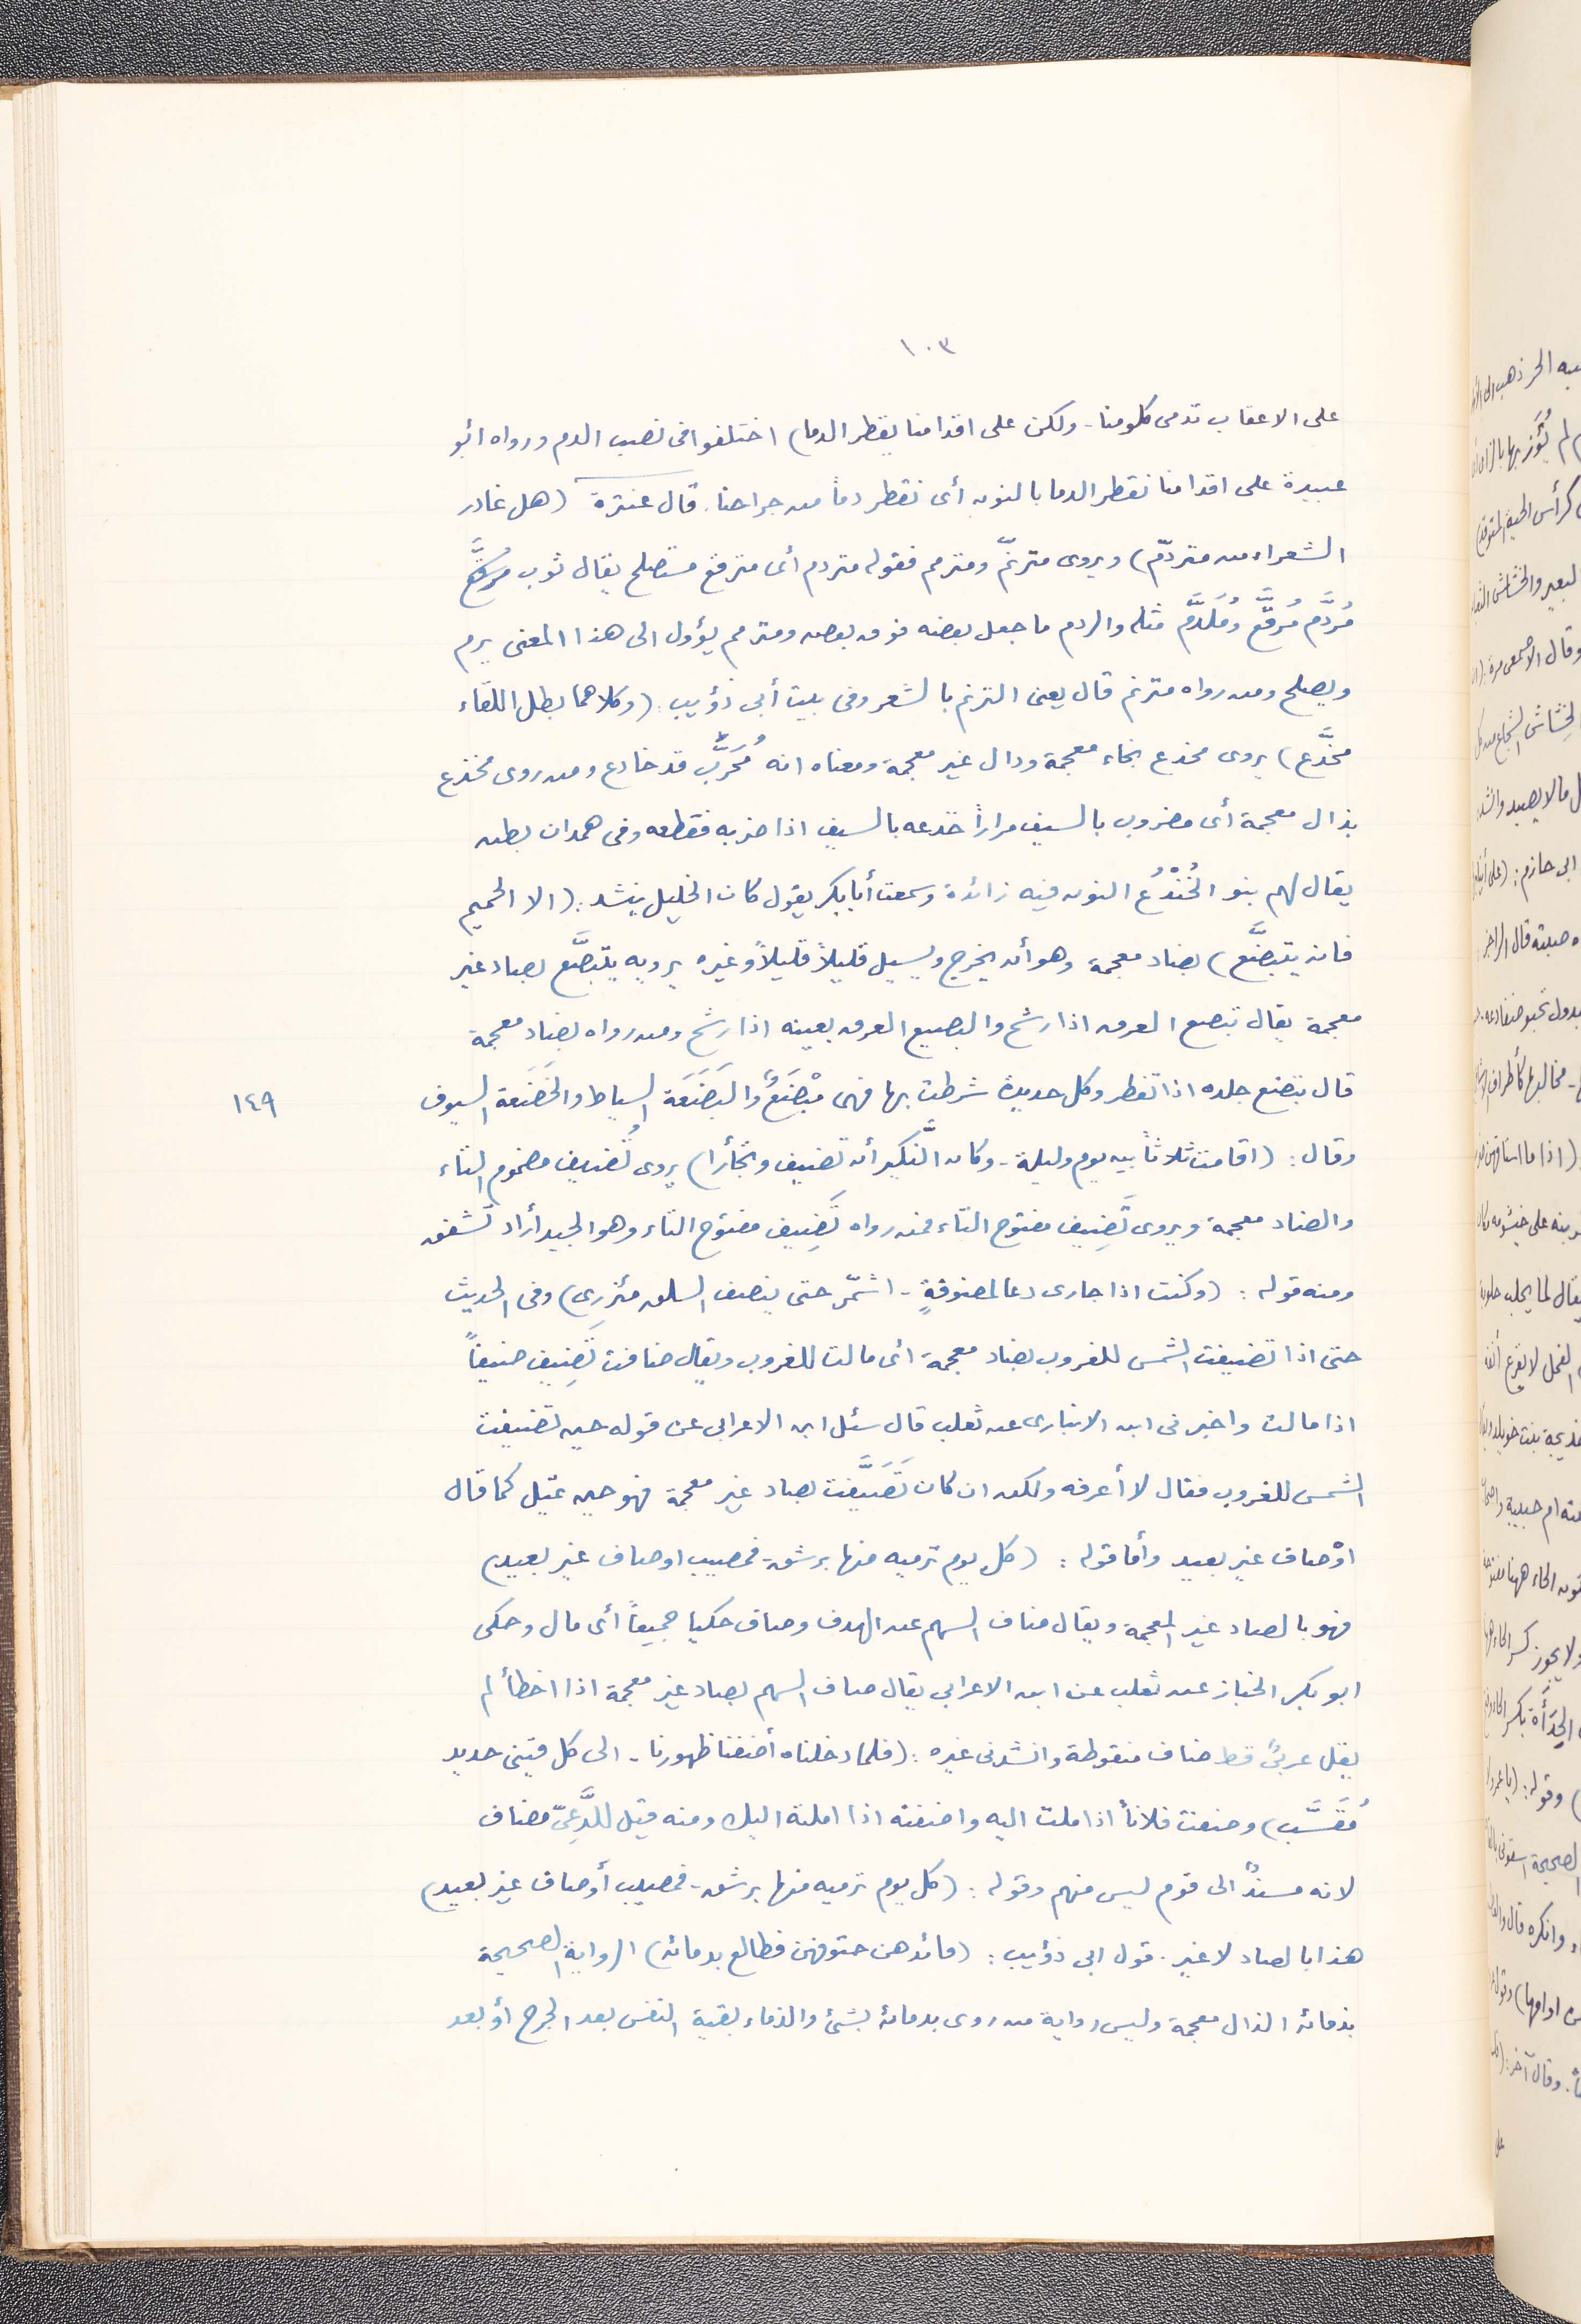 ١٠٣
على الاعقاب تدمى كلومنا - ولكن على اقدامنا يقطر الدما) اختلفوا فى نصب الدم ورواه ابو
عبيدة على اقدامنا نقطر الدما بالنون أى نقطر دماً من جراحنا. قال عنترة (هل غادر
الشعراء من متردّم) ويروى مترنّم ومترمم فقوله متردم أى مترقع مستصلح يقال ثوب مرقّع
مُردَّم مُرقَّع ومُلَدَّم مثله والردم ما جعل بعضه فوق بعض ومترمم يؤول الى هذا المعنى يرم
ويصلح ومن رواه مترنم قال يعنى الترنم بالشعر وفى بيت أبى ذؤيب: (وكلاهما بطل اللقاء
مخدَّع) يروى مخدع بخاء معجمة ودال غير معجمة ومعناه انه مُجَرَّب قد خادع ومن روى مخذع
بذال معجمة أى مضروب بالسيف مراراً خذعه بالسيف اذا ضربه فقطعه وفى همدان بطن
يقال لهم بنو الخُنْذُع النون فيه زائدة وسمعت أبا بكر يقول كان الخليل ينشد: (الا الحميم
فانه يتبضَّع) بضاد معجمة وهو أن يخرج ويسيل قليلاً قليلاً وغيره يرويه يتبصَّع بصاد غير
معجمة يقال تبصع العرق اذا رشح والبصيع العرق بعينه اذا رشح ومن رواه بضاد معجمة
قال تبضع جلده اذا تفطر وكل حديدة شرطت بها فهى مِبْضَعٌ والبَضَعَة السياط والخَضَعَة السيوف
١٤٩
وقال: (اقامت ثلاثاً بين يوم وليلة - وكان النَّكير أن تضيف وتجأرا) يروى تُضيف مضموم التاء
والضاد معجمة ويروى تَضِيف مفتوح التاء فمن رواه تَضِيف مفتوح التاء وهو الجيد أراد تشفق
ومنه قوله: (وكنت اذا جارى دعا لمضوفةٍ - اشمّر حتى ينصف الساق مئزرى) وفى الحديث
حتى اذا تضيفت الشمس للغروب بضاد معجمة اى مالت للغروب ويقال ضافت تَضِيف ضيفاً
اذا مالت واخبرنى ابن الانبارى عن ثعلب قال سئل ابن الاعرابى عن قوله حين تضيفت
الشمس للغروب فقال لا أعرفه ولكن ان كان تَصَيَّفت بصاد غير معجمة فهو حين تميل كما قال
اوْصاف غير بعيد وأما قوله: (كل يوم ترميه منها برشق - فمصيب اوصاف غير بعيد)
فهو بالصاد غير المعجمة ويقال ضاف السهم عن الهدف وصاف حكيا جميعاً أى مال وحكى
ابو بكر الخباز عن ثعلب عن ابن الاعرابى يقال صاف السهم بصاد غير معجمة اذا اخطأ لم
يقل عربىٌّ قط ضاف منقوطة وانشدنى غيره: (فلما دخلناه أضفنا ظهورنا - الى كل قينى حديد
مُقَسَّب) وضفت فلاناً اذا ملت اليه واضفته اذا املته اليك ومنه قيل للدَّعِىّ مضاف
لانه مسندٌ الى قوم ليس منهم وقوله: (كل يوم ترميه منها برشق - فمصيب أوصاف غير بعيد)
هذا بالصاد لا غير. قول ابى ذؤيب: (فأبدهن حتوفهن فطالع بدمائه) الرواية الصحيحة
بذمائه الذال معجمة وليس رواية من روى بدمائه بشئ والذماء بقية النفس بعد الجرح أو بعد